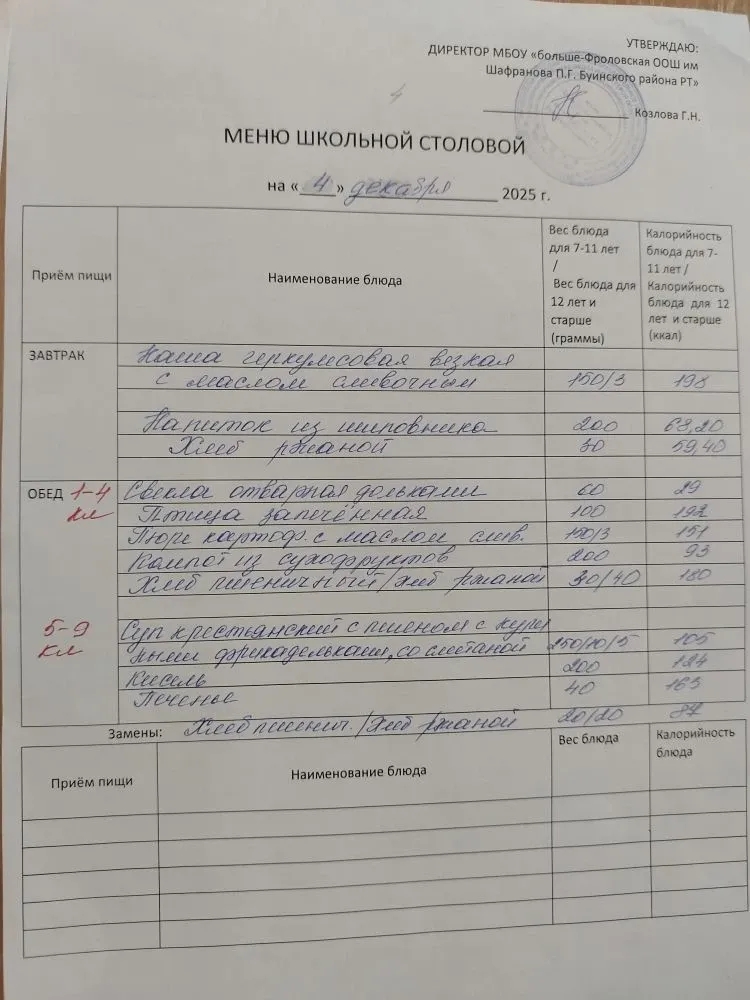 УТВЕРЖДАЮ:
ДИРЕКТОР МБОУ «больше-Фроловская ООШ им
Шафранова П.Г. Буинского района РТ»
Козлова Г.Н.
4
МЕНЮ ШКОЛЬНОЙ СТОЛОВОЙ
на « 4 » декабря 2025 г.
Приём пищи
Наименование блюда
Вес блюда
для 7-11 лет
/
Вес блюда для
12 лет и
старше
(граммы)
Калорийность
блюда для 7-
11 лет /
Калорийность
блюда для 12
лет и старше
(ккал)
ЗАВТРАК
Каша геркулесовая вязкая
с маслом сливочным 150/3 198
Напиток из шиповника 200 68,20
Хлеб ржаной 30 59,40
ОБЕД 1-4 кл
Свекла отварная дольками 60 29
Птица запечённая 100 192
Пюре картоф. с маслом слив. 150/3 151
Компот из сухофруктов 200 93
Хлеб пшеничный/хлеб ржаной 30/40 180
5-9 кл
Суп крестьянский с пшеном с кури
ными фрикадельками, со сметаной 250/10/5 105
Кисель 200 124
Печенье 40 163
Хлеб пшенич./хлеб ржаной 20/20 87
Замены:
Приём пищи
Наименование блюда
Вес блюда
Калорийность
блюда